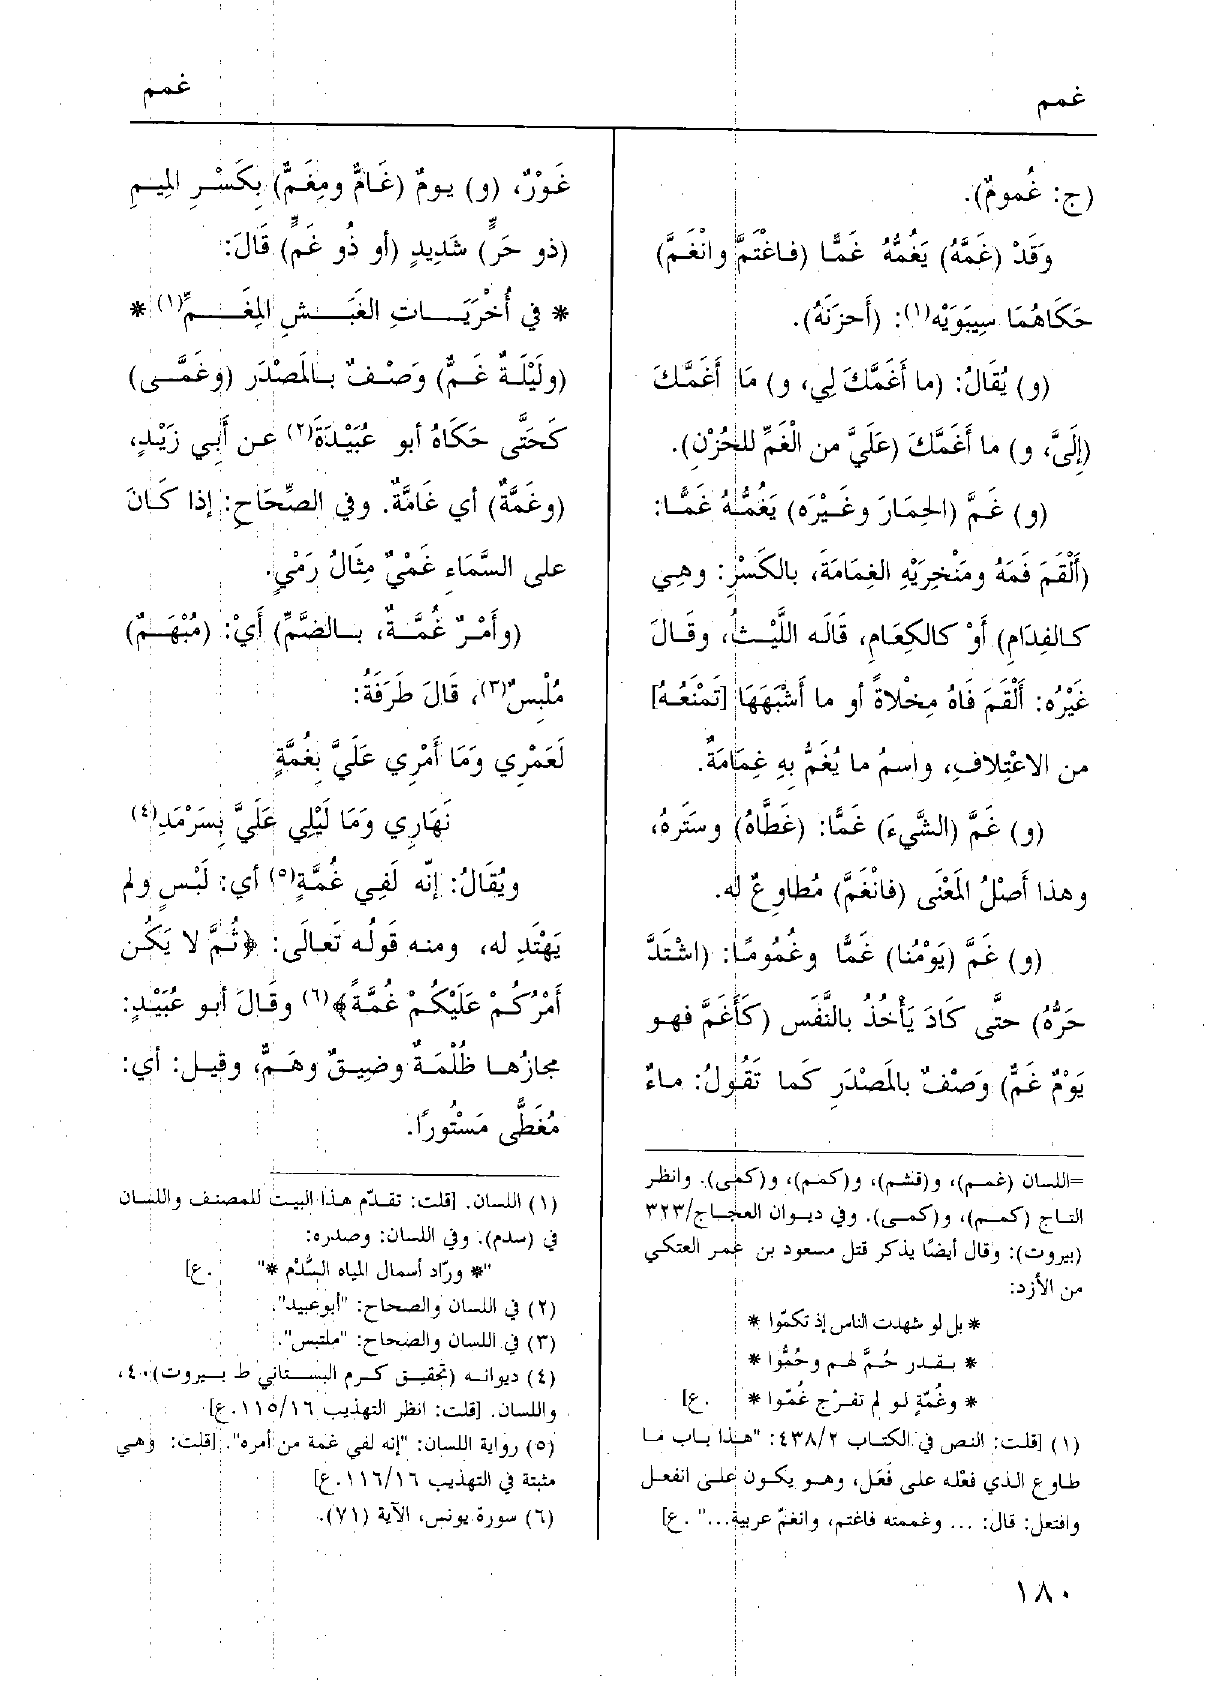 غمم
غمم
(ج: غُمومٌ).
وَقَدْ (غَمَّهُ) يَغُمُّهُ غَمًّا (فاغْتَمَّ وانْغَمَّ)
حَكَاهُمَا سِيبَوَيْه(١): (أَحزَنَهُ).
(و) يُقَالُ: (ما أَغَمَّكَ لِي، و) مَا أَغَمَّكَ
(إِلَيَّ، و) ما أَغَمَّكَ (عَلَيَّ من الْغَمِّ للحُزْنِ).
(و) غَمَّ (الحِمَارَ وغَيْرَه) يَغُمُّهُ غَمًّا:
(أَلْقَمَ فَمَهُ ومَنْخِرَيْهِ الغِمَامَةَ، بالكَسْرِ: وهِي
كالفِدَامِ) أَوْ كالكِعَامِ، قَالَه اللَّيْثُ، وقَالَ
غَيْرُه: أَلْقَمَ فَاهُ مِخْلاةً أو ما أَشْبَهَهَا [تَمْنَعُهُ]
من الاعْتِلافِ، واسمُ ما يُغَمُّ بِهِ غِمَامَةٌ.
(و) غَمَّ (الشَّيءَ) غَمًّا: (غَطَّاهُ) وسَتَرهُ،
وهذا أَصْلُ المَعْنَى (فانْغَمَّ) مُطاوِعٌ له.
(و) غَمَّ (يَوْمُنا) غَمًّا وغُمُومًا: (اشْتَدَّ
حَرُّهُ) حتَّى كَادَ يَأْخُذُ بالنَّفَس (كَأَغَمَّ فهو
يَوْمٌ غَمٌّ) وَصْفٌ بالمَصْدَرِ كما تَقُولُ: ماءٌ
=اللسان (غمم)، و(قشم)، و(كمم)، و(كمى). وانظر
التاج (كمم)، و(كمى). وفي ديوان العجاج/٣٢٣
(بيروت): وقال أيضًا يذكر قتل مسعود بن عمر العتكي
من الأزد:
* بل لو شهدت الناس إذ تكمّوا *
* بقدر حُمَّ لهم وحُمُّوا *
* وغُمّةٍ لو لم تفرّج غُمّوا * .ع]
(١) [قلت: النص في الكتاب ٤٣٨/٢: "هذا باب ما
طاوع الذي فعْله على فَعَل، وهو يكون على انفعل
وافتعل: قال: ... وغممته فاغتم، وانغمّ عربية..." .ع]
غَوْرٌ، (و) يومٌ (غَامٌّ ومِغَمٌّ) بِكَسْرِ المِيمِ
(ذو حَرٍّ) شَدِيدٍ (أو ذُو غَمٍّ) قَالَ:
* في أُخْرَيَاتِ الغَبَشِ المِغَمِّ(١) *
(ولَيْلَةٌ غَمٌّ) وَصْفٌ بالمَصْدَرِ (وغَمَّى)
كَحَتَّى حَكَاهُ أبو عُبَيْدَةَ(٢) عن أَبِي زَيْدٍ،
(وغَمَّةٌ) أي غَامَّةٌ. وفي الصِّحَاحِ: إذا كَانَ
على السَّمَاءِ غَمْيٌ مِثَالُ رَمْيٍ.
(وأَمْرٌ غُمَّةٌ، بالضَّمِّ) أَيْ: (مُبْهَمٌ)
مُلْبِسٌ(٣)، قَالَ طَرَفَةُ:
لَعَمْرِي وَمَا أَمْرِي عَلَيَّ بِغُمَّةٍ
نَهَارِي وَمَا لَيْلِي عَلَيَّ بِسَرْمَدِ(٤)
ويُقَالُ: إنّه لَفِي غُمَّةٍ(٥) أي: لَبْسٍ ولم
يَهْتَدِ له، ومنه قَولُه تَعالَى: ﴿ثُمَّ لا يَكُن
أَمْرُكُمْ عَلَيْكُمْ غُمَّةً﴾(٦) وقَالَ أبو عُبَيْدٍ:
مجازُها ظُلْمَةٌ وضِيقٌ وهَمٌّ، وقيل: أي:
مُغَطًّى مَسْتُورًا.
(١) اللسان. [قلت: تقدّم هذا البيت للمصنف واللسان
في (سدم). وفي اللسان: وصدره:
"* ورّاد أسمال المياه السُّدْم *" .ع]
(٢) في اللسان والصحاح: "أبوعبيد".
(٣) في اللسان والصحاح: "ملتبس".
(٤) ديوانه (تحقيق كرم البستاني ط بيروت) ٤٠،
واللسان. [قلت: انظر التهذيب ١١٥/١٦.ع]
(٥) رواية اللسان: "إنه لفي غمة من أمره". [قلت: وهي
مثبتة في التهذيب ١١٦/١٦.ع]
(٦) سورة يونس، الآية (٧١).
١٨٠